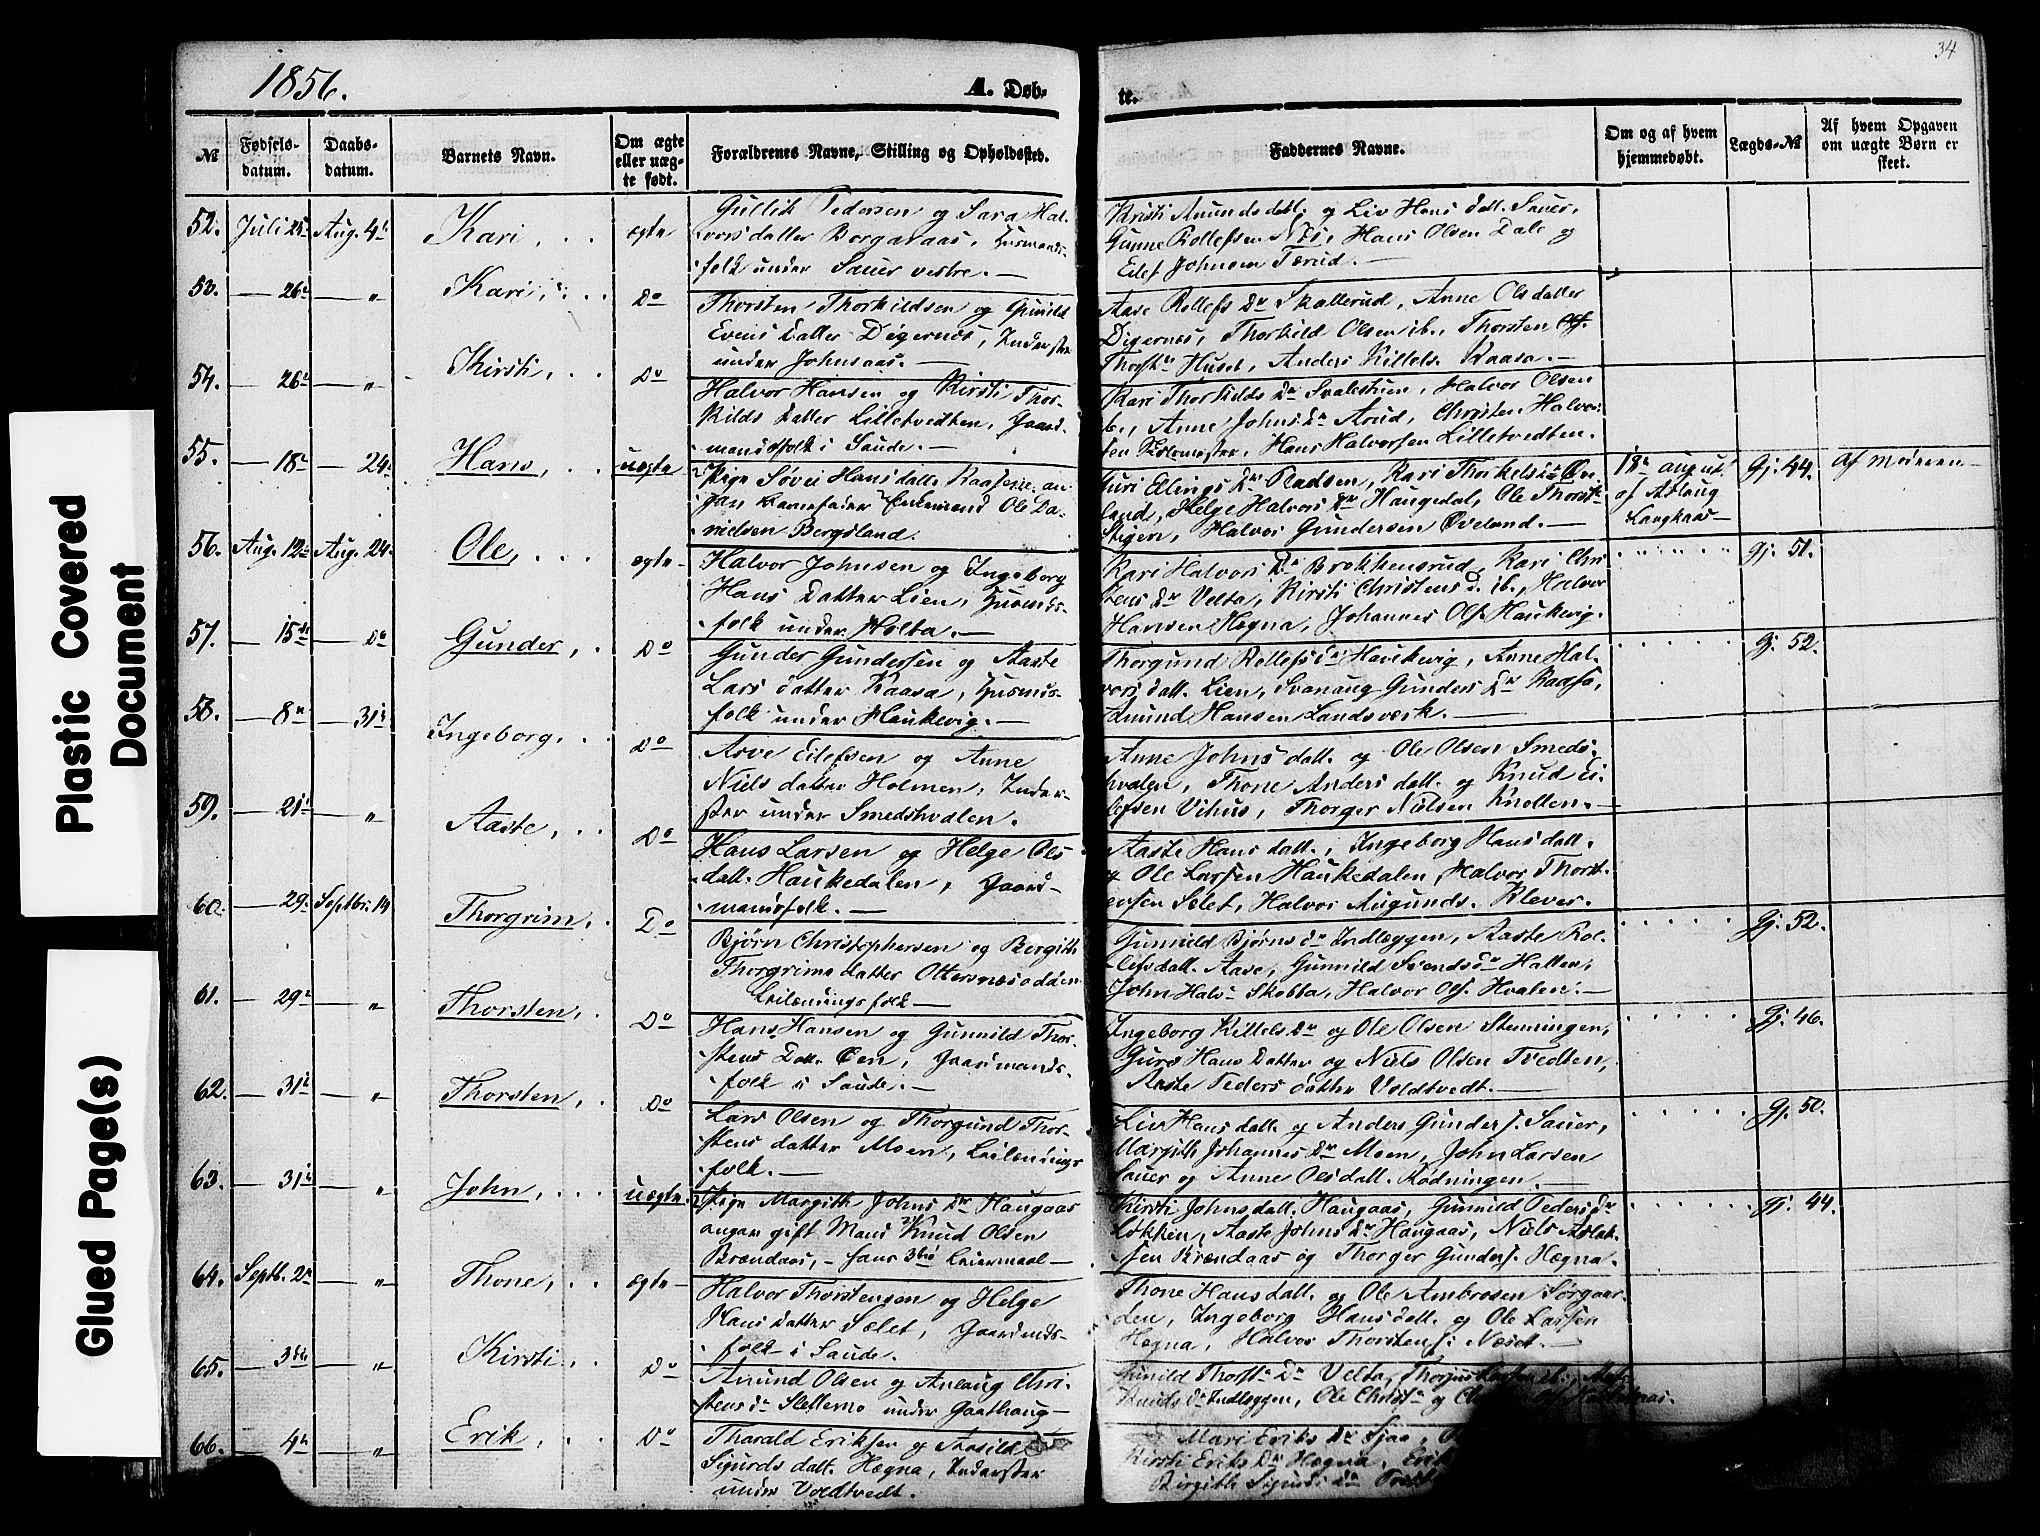 34
1856.
A. Døb-
te.
№
Fødsels-
datum.
Daabs-
datum.
Barnets Navn.
Om ægte
eller uæg-
te født.
Forældrenes Navne, Stilling og Opholdssted.
Faddernes Navne.
Om og af hvem
hjemmedøbt.
Lægds-№
Af hvem Opgaven
om uægte Børn er
skeet.
52. Juli 25 Aug. 4 Kari, ægte
Gullik Pedersen og Sara Hal-
vorsdatter Borgaraas, Husmands-
folk under Sauer vestre.
Kirsti Amundsdatt. og Liv Hans datt. Sauer,
Gunne Rollefsen Næs, Hans Olsen Dale og
Eilef Johnsen Tærud.
53. 26 " Kari, Do
Thorsten Thorkildsen og Gunild
Evens Datter Digernæs, Inderster
under Johnsaas.
Aase Rollefs Dr Skallerud, Anne Olsdatter
Digernæs, Thorkild Olsen ib., Thorsten
Huset, Anders Killels. Kaasa.
54. 26 " Kirsti, Do
Halvor Hansen og Kirsti Thor-
kilds Datter Lilletvedten, Gaard-
mandsfolk i Saude.
Kari Thorkilds Dr Svalestuen, Halvor Olsen
ib., Anne Johns Dr Aarud, Christen Halvor-
sen Hans Halvorsen Lilletvedten.
55. 18 24 Hans, uægte
Pige Søvei Hans datt. Kaasene, an-
given Barnefader Enkemand Ole Da-
nielsen Bergsland.
Guri Ellings Dr Kari Thorkels Dr Øve-
land, Helge Halvors Dr Haugedal, Ole Thorst.
Stigen, Halvor Gundersen Øveland.
18 august
af Aslaug
Langkaas
Gj. 44.
Af Moderen
56. Aug. 12 Aug. 24 Ole, ægte
Halvor Johnsen og Ingeborg
Hans Datter Lien, Husmds-
folk under Holta.
Kari Halvors Dr Brekkensrud, Kari Chri-
stens Dr Velta, Kirsti Christens D. ib., Halvor
Hansen Hægna, Johannes Ols. Haukevig.
Gj. 51.
57. 15de Do Gunder, Do
Gunder Gundersen og Aaste
Lars datter Kaasa, Husmds-
folk under Haukevig.
Thorgund Rollefs Dr Haukevig, Anne Hal-
vors datt. Lien, Svanaug Gunders Dr Kaasa,
Amund Hansen Landsverk.
Gj. 52.
58. 8 31 Ingeborg, Do
Arve Eilefsen og Anne
Niels datter Holmen, Inder-
ster under Smedshvalen.
Anne Johns datt. og Ole Olsen Smeds-
hvalen, Thone Anders datt. og Knud Ei-
lefsen Vihus, Thorger Nielsen Knollen.
59. 21 " Aaste, Do
Hans Larsen og Helge Ols
datt. Haukedalen, Gaard-
mandsfolk.
Aaste Hans datt., Ingeborg Hans datt.
og Ole Larsen Haukedalen, Halvor Thorst-
ensen Sælet, Halvor Augunds. Klever.
60. 29 Septbr. 14 Thorgrim, Do
Bjørn Christophersen og Bergith
Thorgrims datter Ottersnæsodden
Leilændingsfolk
Gunnild Bjørns Dr Indlæggen, Aaste Rol-
lefsdatt. Aase, Gunnild Svends Dr Halten,
John Hals. Skobba, Halvor Ols. Hvalen.
Gj. 52.
61. 29 " Thorsten, Do
Hans Hansen og Gunnild Thor-
stens Datt. Øen, Gaardmands-
folk i Saude.
Ingeborg Killels Dr og Ole Olsen Stenningen,
Guro Hans Datter og Niels Olsen Tvedten,
Aaste Peders datter Voldtvedt.
Gj. 46.
62. 31 " Thorsten, Do
Lars Olsen og Thorgund Thor-
stens datter Moen, Leilændings
folk.
Liv Hans datt. og Anders Gunders. Sauer,
Margith Johannes Dr Moen, John Larsen
Sauer og Anne Ols datt. Rødningen.
Gj. 50.
63. 31 " John, uægte
Pige Margith Johns Dr Haugaas
angav gift Mand Knud Olsen
Brændaas, - hans 3die Leiermaal
Kirsti Johnsdatt. Haugaas, Gunnild Peders Dr
Løkken, Aaste Johns Dr Haugaas, Niels Aslak-
sen Brændaas og Thorger Gunders. Hægna.
Gj. 44.
64. Septb. 2 " Thone, ægte
Halvor Thorstensen og Helge
Hans datter Sælet, Gaardmds-
folk i Saude.
Thone Hans datt. og Ole Ambrosen Sørgaar-
den, Ingeborg Hans datt. og Ole Larsen
Hægna, Halvor Thorstens. Næset.
65. 3die " Kirsti, Do
Amund Olsen og Anlaug Chri-
stens Dr Slettemo under Gaathaug
Gunild Thorst. Dr Velta, ib.,
Knuds Dr Indlæggen, Ole Christ. og
66. 4 " Erik, Do
Tharald Eriksen og Aasild
Sigurds datt. Hægna, Inderster
under Voldtvedt.
Mari Eriks Dr Sjaa,
Kirsti Eriks Dr Hægna, Erik
Birgith Sigurds Dr
Plastic Covered
Document
Glued Page(s)